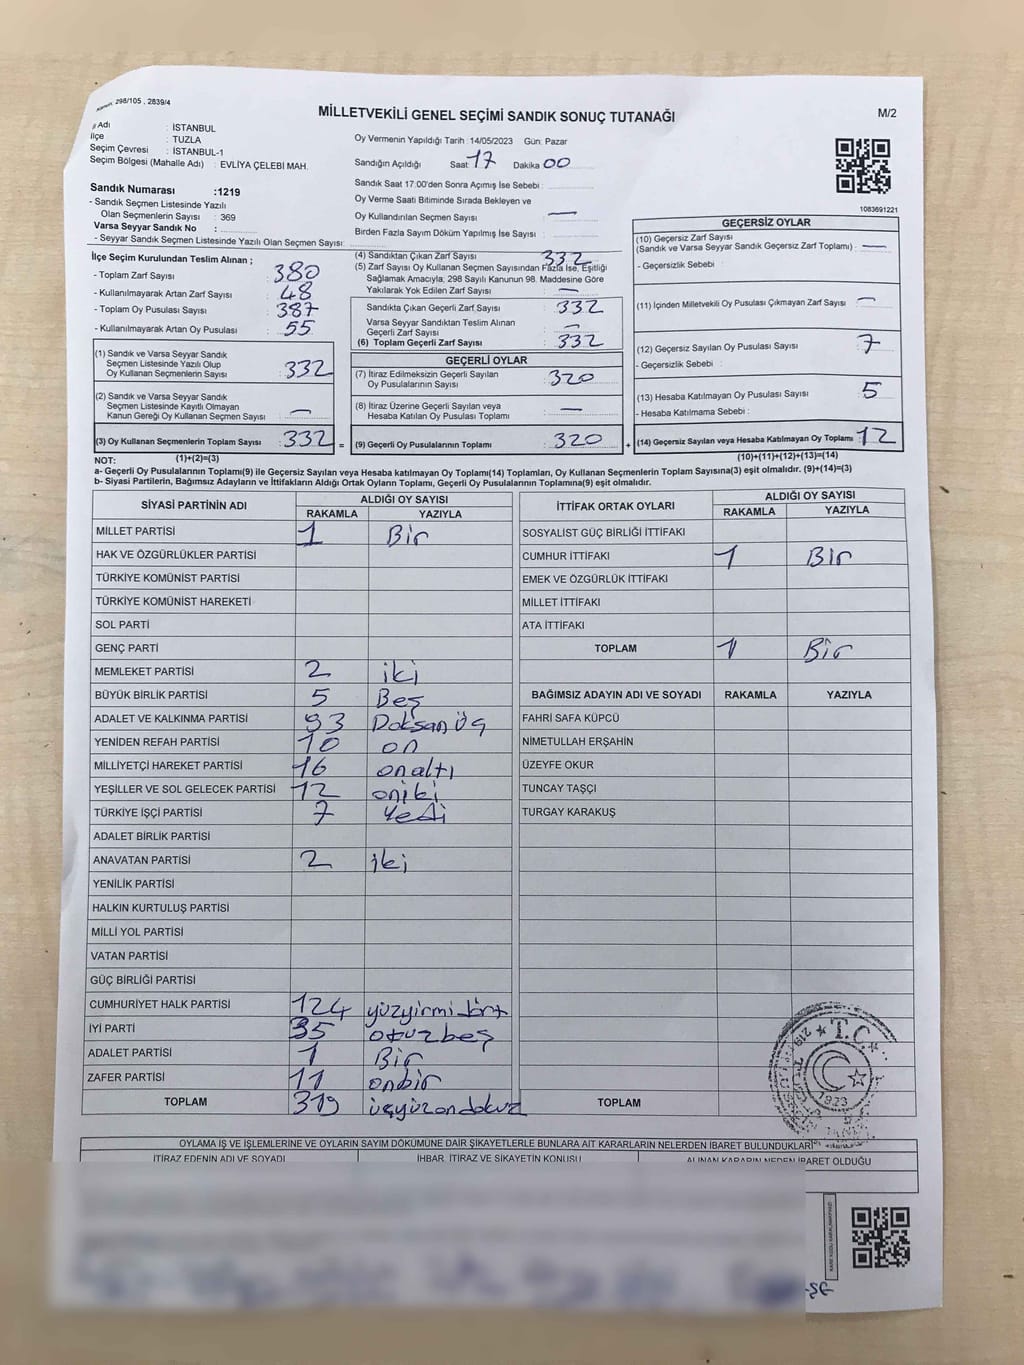 Kanun: 298/105 , 2839/4
MİLLETVEKİLİ GENEL SEÇİMİ SANDIK SONUÇ TUTANAĞI
M/2
İl Adı : İSTANBUL
İlçe : TUZLA
Seçim Çevresi : İSTANBUL-1
Seçim Bölgesi (Mahalle Adı) : EVLİYA ÇELEBİ MAH.
Oy Vermenin Yapıldığı Tarih :14/05/2023 Gün: Pazar
Sandığın Açıldığı Saat 17 Dakika 00
Sandık Saat 17:00'den Sonra Açımış İse Sebebi :
Oy Verme Saati Bitiminde Sırada Bekleyen ve
Oy Kullandırılan Seçmen Sayısı : —
Birden Fazla Sayım Döküm Yapılmış İse Sayısı :
1083691221
Sandık Numarası :1219
- Sandık Seçmen Listesinde Yazılı
Olan Seçmenlerin Sayısı : 369
Varsa Seyyar Sandık No :
- Seyyar Sandık Seçmen Listesinde Yazılı Olan Seçmen Sayısı:
İlçe Seçim Kurulundan Teslim Alınan ;
- Toplam Zarf Sayısı : 380
- Kullanılmayarak Artan Zarf Sayısı : 48
- Toplam Oy Pusulası Sayısı : 387
- Kullanılmayarak Artan Oy Pusulası : 55
(1) Sandık ve Varsa Seyyar Sandık
Seçmen Listesinde Yazılı Olup
Oy Kullanan Seçmenlerin Sayısı : 332
(2) Sandık ve Varsa Seyyar Sandık
Seçmen Listesinde Kayıtlı Olmayan
Kanun Gereği Oy Kullanan Seçmen Sayısı : —
(3) Oy Kullanan Seçmenlerin Toplam Sayısı : 332 =
(4) Sandıktan Çıkan Zarf Sayısı : 332
(5) Zarf Sayısı Oy Kullanan Seçmen Sayısından Fazla İse, Eşitliği
Sağlamak Amacıyla; 298 Sayılı Kanunun 98. Maddesine Göre
Yakılarak Yok Edilen Zarf Sayısı : —
Sandıkta Çıkan Geçerli Zarf Sayısı : 332
Varsa Seyyar Sandıktan Teslim Alınan
Geçerli Zarf Sayısı : —
(6) Toplam Geçerli Zarf Sayısı : 332
GEÇERLİ OYLAR
(7) İtiraz Edilmeksizin Geçerli Sayılan
Oy Pusulalarının Sayısı : 320
(8) İtiraz Üzerine Geçerli Sayılan veya
Hesaba Katılan Oy Pusulası Toplamı : —
(9) Geçerli Oy Pusulalarının Toplamı : 320 +
GEÇERSİZ OYLAR
(10) Geçersiz Zarf Sayısı
(Sandık ve Varsa Seyyar Sandık Geçersiz Zarf Toplamı) : —
- Geçersizlik Sebebi :
(11) İçinden Milletvekili Oy Pusulası Çıkmayan Zarf Sayısı : —
(12) Geçersiz Sayılan Oy Pusulası Sayısı : 7
- Geçersizlik Sebebi :
(13) Hesaba Katılmayan Oy Pusulası Sayısı : 5
- Hesaba Katılmama Sebebi :
(14) Geçersiz Sayılan veya Hesaba Katılmayan Oy Toplamı : 12
NOT: (1)+(2)=(3) (10)+(11)+(12)+(13)=(14)
a- Geçerli Oy Pusulalarının Toplamı(9) ile Geçersiz Sayılan veya Hesaba katılmayan Oy Toplamı(14) Toplamları, Oy Kullanan Seçmenlerin Toplam Sayısına(3) eşit olmalıdır. (9)+(14)=(3)
b- Siyasi Partilerin, Bağımsız Adayların ve İttifakların Aldığı Ortak Oyların Toplamı, Geçerli Oy Pusulalarının Toplamına(9) eşit olmalıdır.
SİYASİ PARTİNİN ADI ALDIĞI OY SAYISI
RAKAMLA YAZIYLA
MİLLET PARTİSİ 1 Bir
HAK VE ÖZGÜRLÜKLER PARTİSİ
TÜRKİYE KOMÜNİST PARTİSİ
TÜRKİYE KOMÜNİST HAREKETİ
SOL PARTİ
GENÇ PARTİ
MEMLEKET PARTİSİ 2 iki
BÜYÜK BİRLİK PARTİSİ 5 Beş
ADALET VE KALKINMA PARTİSİ 93 Doksan üç
YENİDEN REFAH PARTİSİ 10 on
MİLLİYETÇİ HAREKET PARTİSİ 16 onaltı
YEŞİLLER VE SOL GELECEK PARTİSİ 12 oniki
TÜRKİYE İŞÇİ PARTİSİ 7 Yedi
ADALET BİRLİK PARTİSİ
ANAVATAN PARTİSİ 2 iki
YENİLİK PARTİSİ
HALKIN KURTULUŞ PARTİSİ
MİLLİ YOL PARTİSİ
VATAN PARTİSİ
GÜÇ BİRLİĞİ PARTİSİ
CUMHURİYET HALK PARTİSİ 124 yüzyirmi dört
İYİ PARTİ 35 otuzbeş
ADALET PARTİSİ 1 Bir
ZAFER PARTİSİ 11 onbir
TOPLAM 319 üçyüzondokuz
İTTİFAK ORTAK OYLARI ALDIĞI OY SAYISI
RAKAMLA YAZIYLA
SOSYALİST GÜÇ BİRLİĞİ İTTİFAKI
CUMHUR İTTİFAKI 1 Bir
EMEK VE ÖZGÜRLÜK İTTİFAKI
MİLLET İTTİFAKI
ATA İTTİFAKI
TOPLAM 1 Bir
BAĞIMSIZ ADAYIN ADI VE SOYADI RAKAMLA YAZIYLA
FAHRİ SAFA KÜPCÜ
NİMETULLAH ERŞAHİN
ÜZEYFE OKUR
TUNCAY TAŞÇI
TURGAY KARAKUŞ
TOPLAM
T.C.
1923
OYLAMA İŞ VE İŞLEMLERİNE VE OYLARIN SAYIM DÖKÜMÜNE DAİR ŞİKAYETLERLE BUNLARA AİT KARARLARIN NELERDEN İBARET BULUNDUKLARI
İTİRAZ EDENİN ADI VE SOYADI İHBAR, İTİRAZ VE ŞİKAYETİN KONUSU ALINAN KARARIN NEDEN İBARET OLDUĞU